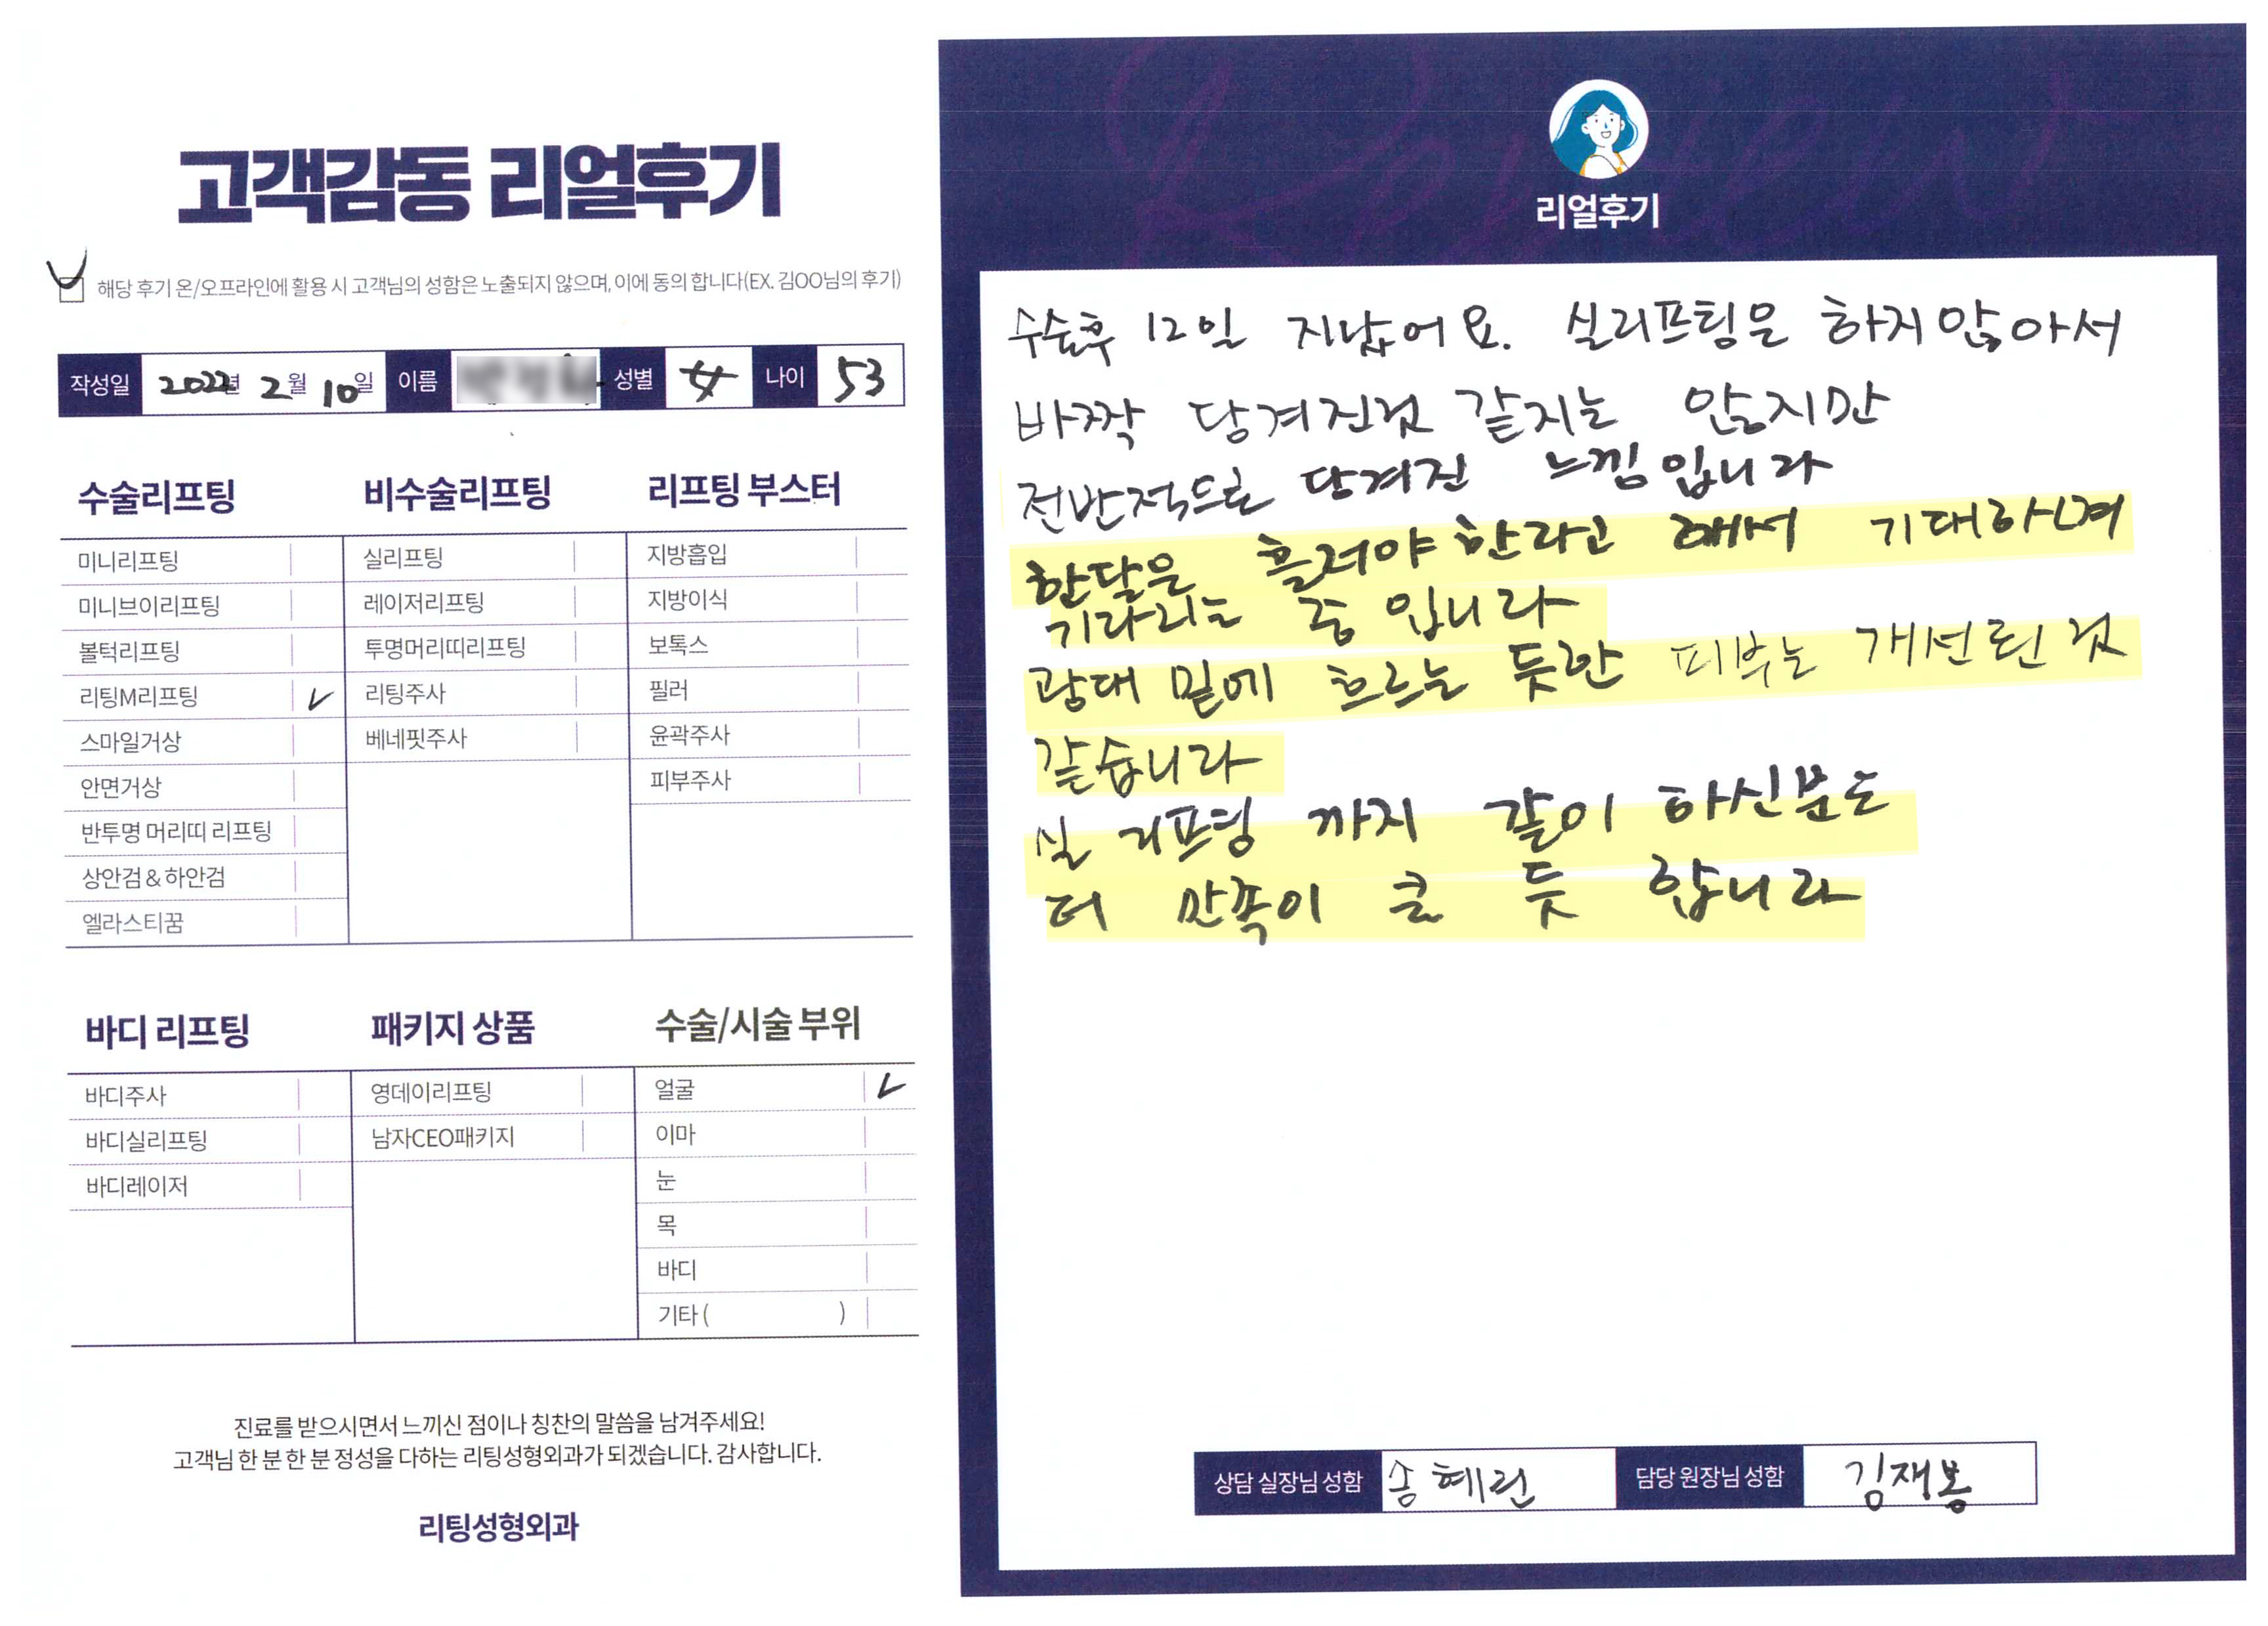 고객감동 리얼후기
해당 후기 온/오프라인에 활용 시 고객님의 성함은 노출되지 않으며, 이에 동의 합니다(EX. 김OO님의 후기)
작성일 2022년 2월 10일 이름 성별 여 나이 53
수술리프팅
미니리프팅
미니브이리프팅
볼턱리프팅
리팅M리프팅 ✓
스마일거상
안면거상
반투명 머리띠 리프팅
상안검 & 하안검
엘라스티꿈
비수술리프팅
실리프팅
레이저리프팅
투명머리띠리프팅
리팅주사
베네핏주사
리프팅 부스터
지방흡입
지방이식
보톡스
필러
윤곽주사
피부주사
바디 리프팅
바디주사
바디실리프팅
바디레이저
패키지 상품
영데이리프팅
남자CEO패키지
수술/시술 부위
얼굴 ✓
이마
눈
목
바디
기타 ( )
진료를 받으시면서 느끼신 점이나 칭찬의 말씀을 남겨주세요!
고객님 한 분 한 분 정성을 다하는 리팅성형외과가 되겠습니다. 감사합니다.
리팅성형외과
리얼후기
수술후 12일 지났어요. 실리프팅은 하지 않아서
바짝 당겨진것 같지는 않지만
전반적으로 당겨진 느낌입니다
한달은 흘러야 한라고 해서 기대하며
기다리는 중 입니다
광대 밑에 흐르는 듯한 피부는 개선된 것
같습니다
실 리프팅 까지 같이 하신분은
더 만족이 클 듯 합니다
상담 실장님 성함 송혜린 담당 원장님 성함 김재봉